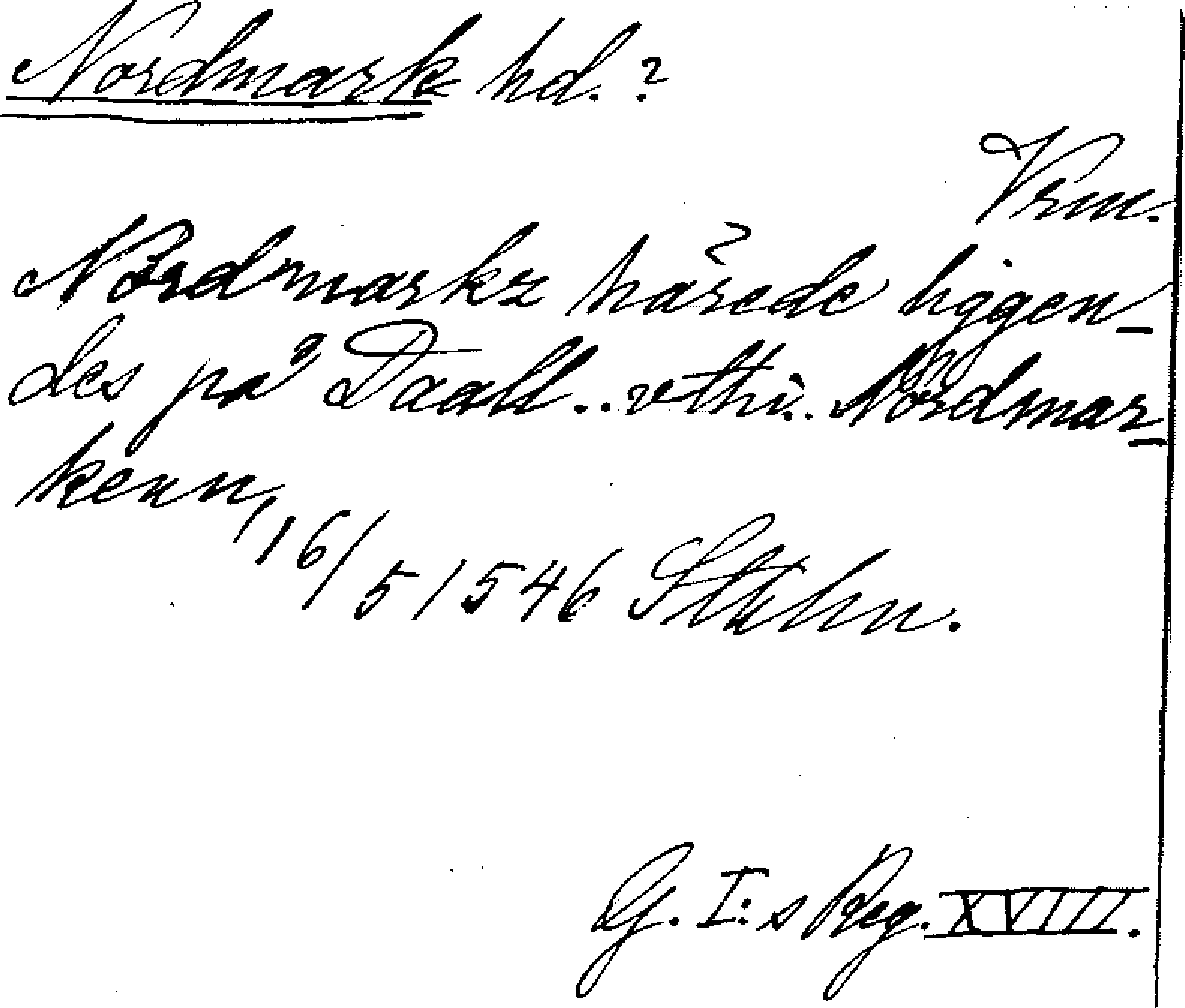 Nordmark hd.?
Vrm.
Nordmarkz härede liggen-
des på Daall.. vthi.. Nordmar-
kenn, 16/5 1546 Sthlm.
G. I:s Reg. XVIII.